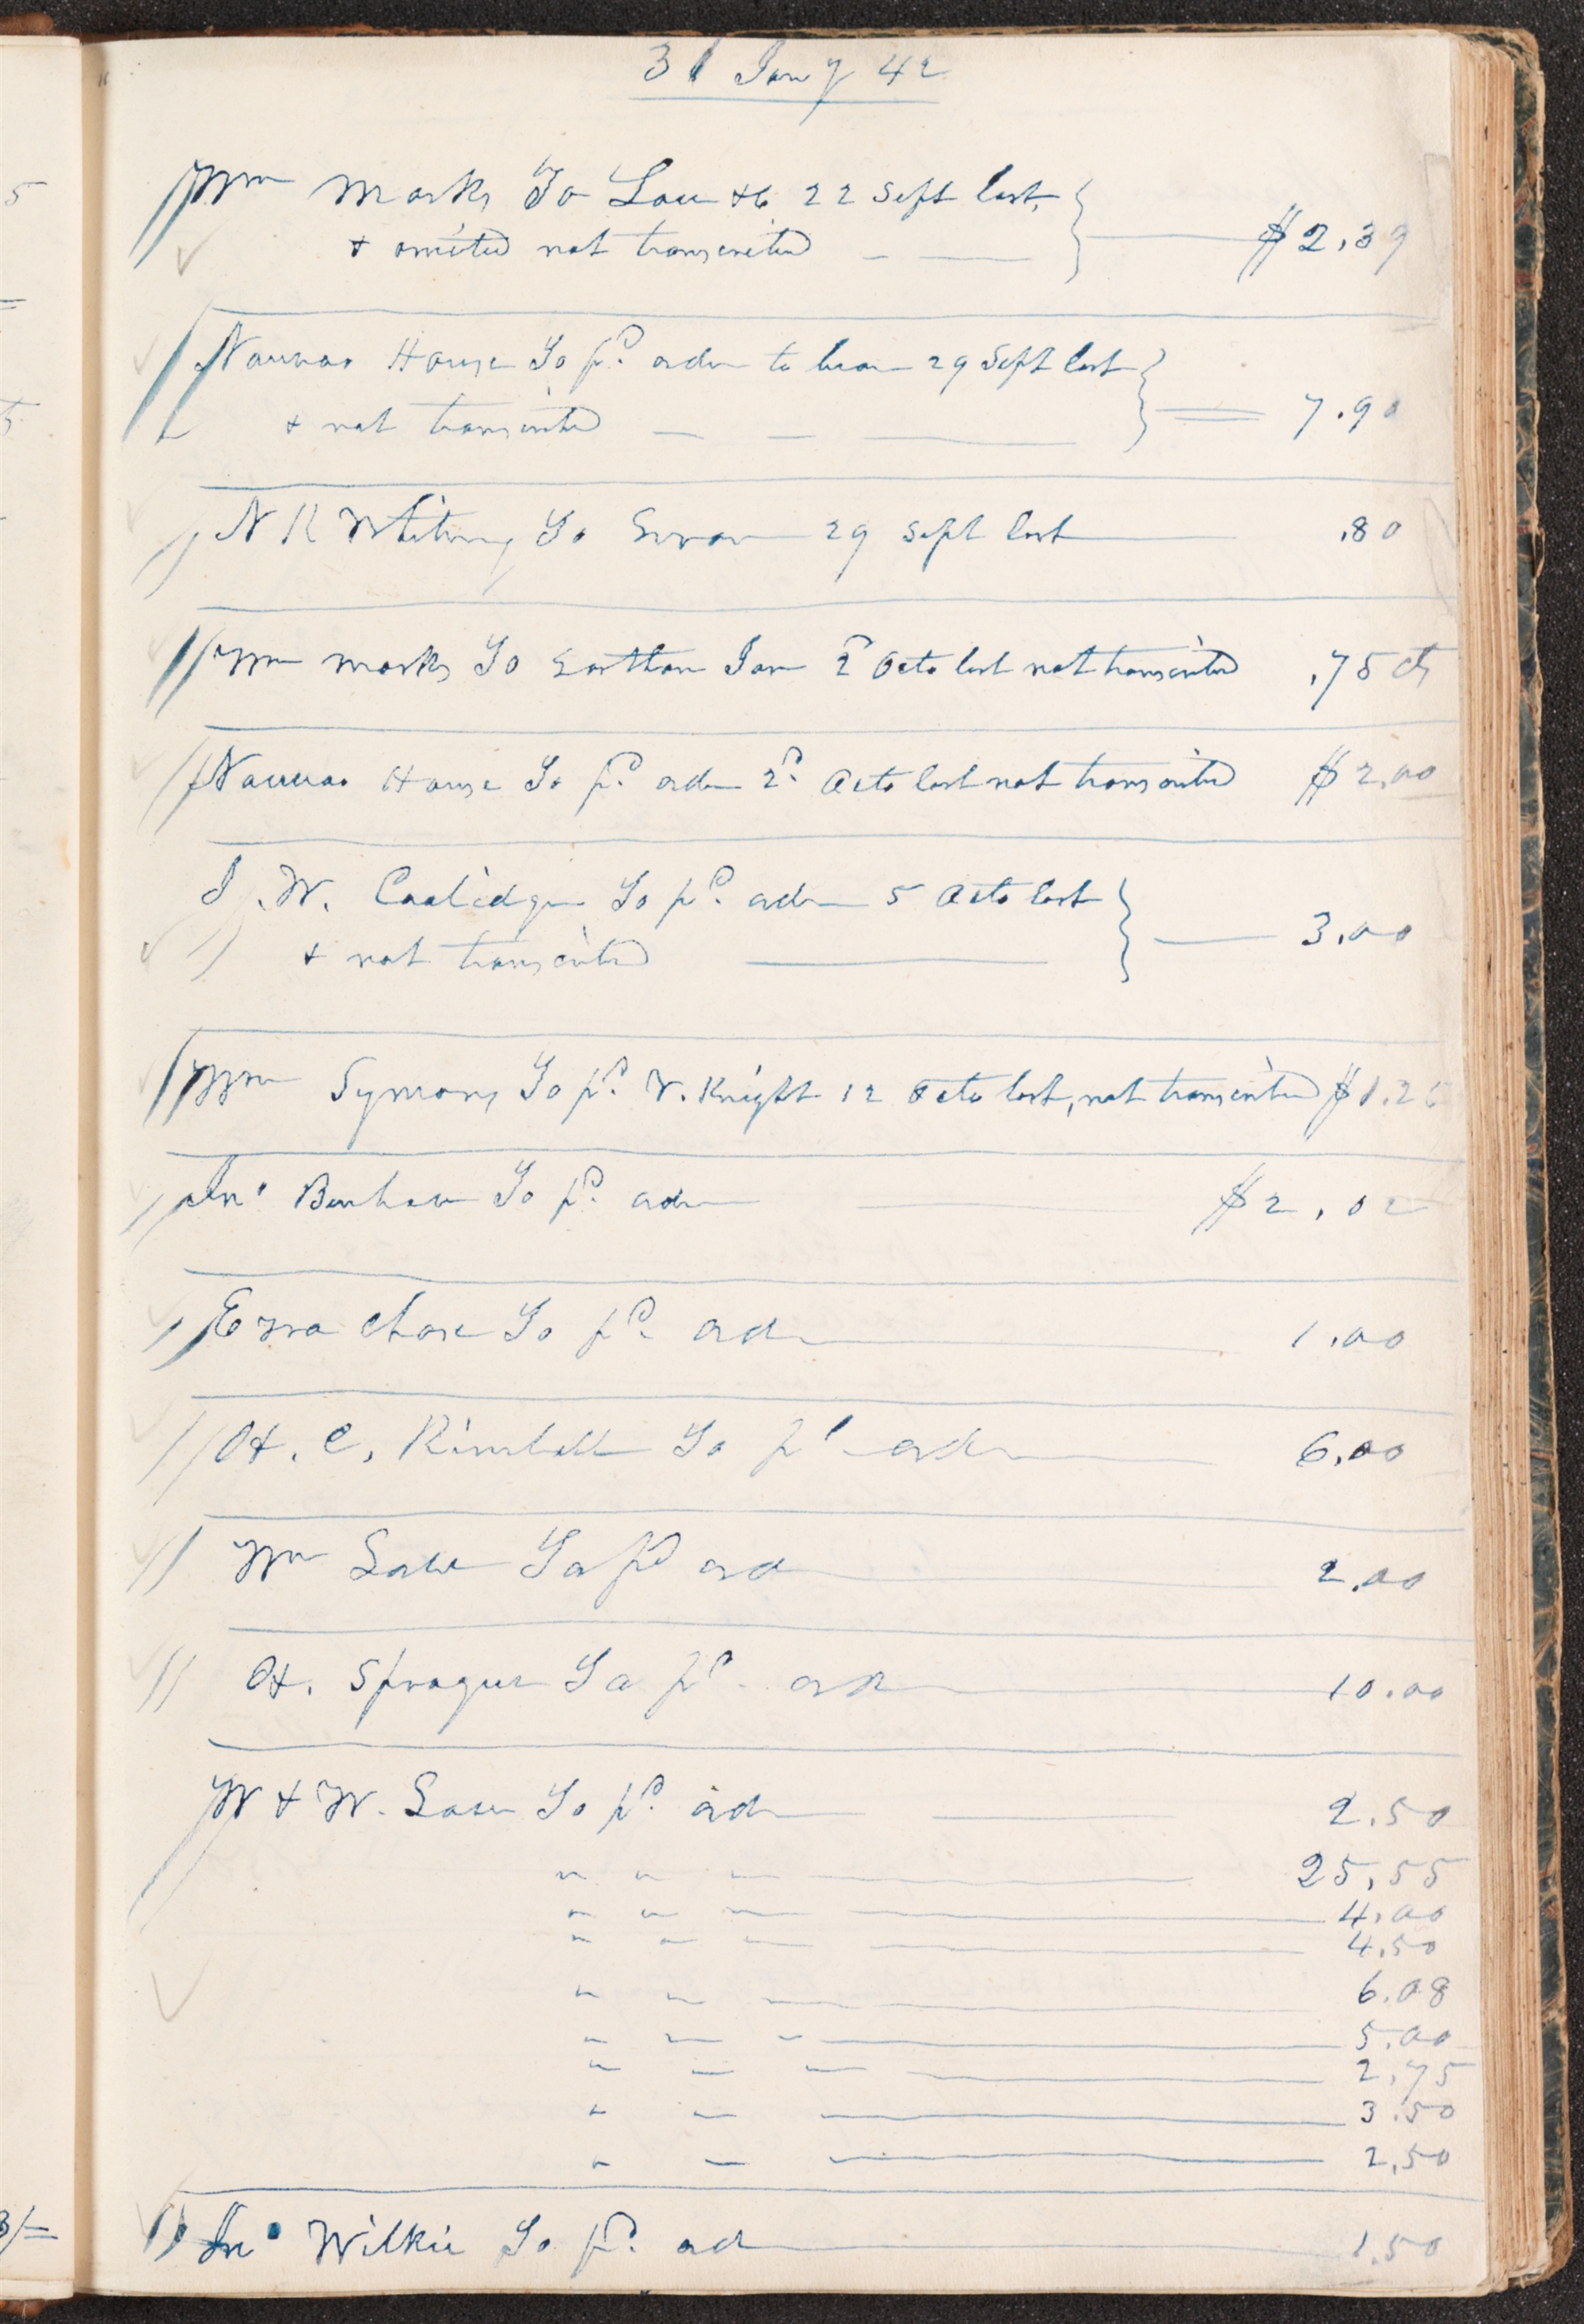 31 Jany 42
Wm Marks To Law &c 22 Sept last,
& omited not transcrited $2,39
Nauvoo House To pd. order to 29 Sept last
& not transcrited 7.90
N K Whitney To 29 Sept last .80
Wm Marks To Jar 2d Octo last not transcrited ,75 cts
Nauvoo House To pd. order 2d. Octo last not transcrited $2,00
J. W. Coolidge To pd. order 5 Octo last
& not transcrited 3,00
Wm Symons To pd. V. Knight 12 Octo last, not transcrited $1.25
Jno. To pd. order $2,02
Ezra Chase To pd. order 1,00
H. C. Kimball To pd order 6,00
Wm Law To pd ord 2,00
H. Sprague To pd. ord 10.00
W & W. Law To pd. ord 2.50
" " " 25,55
" " " 4,00
" " " 4,50
" " " 6.08
" " " 5.00
" " " 2,75
" " 3.50
" " 2,50
Jno. Wilkie To pd. ord 1,50
5
3/=